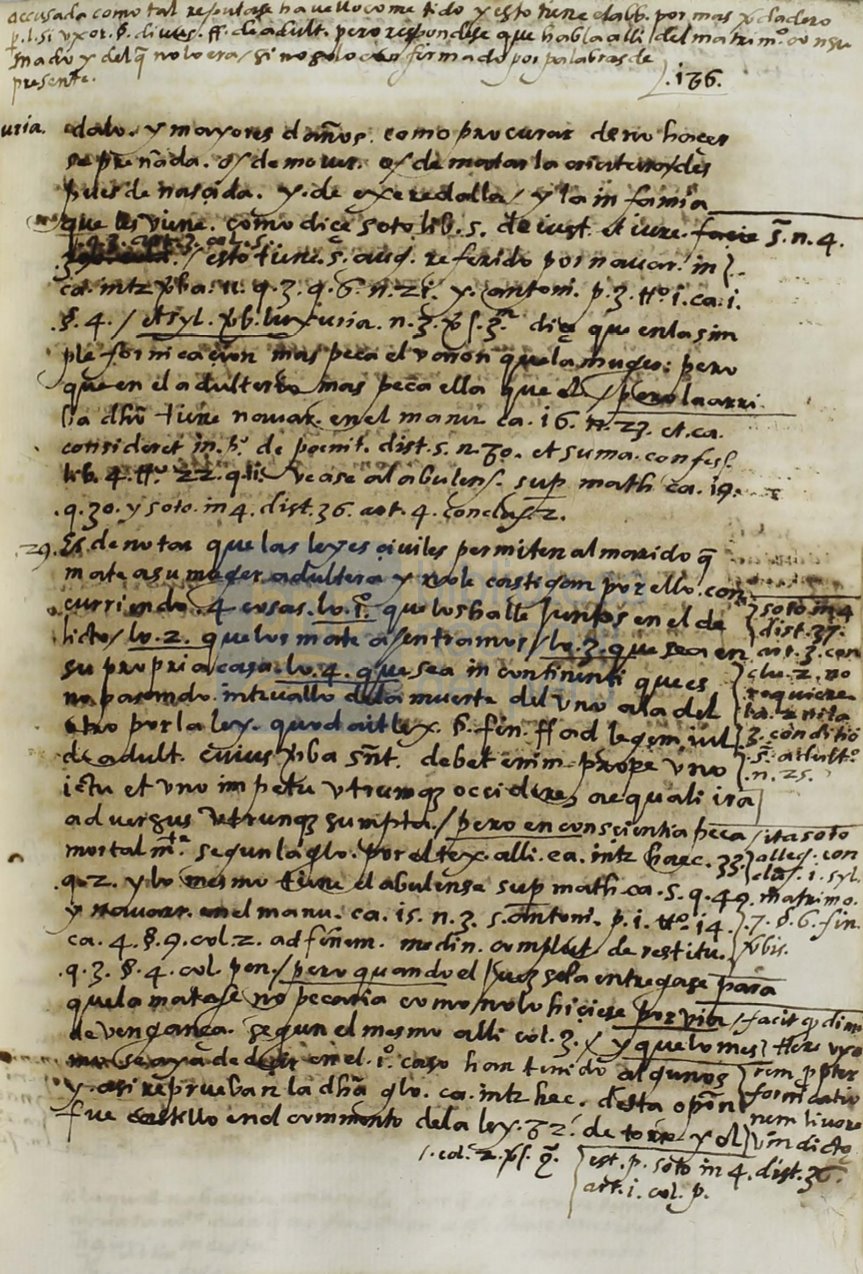 accusada como tal reputase havello cometido y esto tiene el abb. por mas verdadero
p. l. si uxor. §. divus. ff. de adult. pero respondese que habla alli del matrimº. consu
mado y del q̃ no lo era / si no solo confirmado por palabras de
presente.
.136.
uria. edalo. y mayores daños. como procurar de no hacer
se preñada. o de mover. o de matar la criatura des
pues de nascida. y. de exeredalla / y la infamia
que les viene. como dice soto lib. 5. de iust. et iure. s̃. n. 4.
p. q. 3. art. 3. col. 5.
/ esto tiene. s. aug. referido por navar. in
ca. intr verba. 11. q. 3. q. 6. n. 21. y. antoni. p. 3. ttº. 1. ca. 1.
§. 4. / et syl. verb. luxuria. n. 3. vers. 3ª. dice que en la sim
ple fornicacion mas peca el varon que la muger: pero
que en el adulterio mas peca ella que el / pero la arri
ba dha tiene navar. en el manu. ca. 16. n. 27. et. ca.
consideret in. pº. de poenit. dist. 5. n. 30. et suma. confess.
lib. 4. ttº. 22. vease al abulens. sup math ca. 19.
.q. 30. y soto. in 4. dist. 36. art. 4. conclus. 2.
29. Es de notar que las leyes civiles permiten al marido q̃
mate a su muger adultera y no le castigan por ello. con
curriendo. 4 cosas. lo. 1º. que los halle juntos en el de
licto / lo. 2. que los mate a entramos / lo. 3. que sea en
su propria casa. lo. 4. que sea in continenti que es
no pasando. intervallo de la muerte del uno a la del
otro por la ley. quod ait lex. §. fin. ff ad legem. iul.
de adult. cuius verba sunt. debet enim prope uno
ictu et uno impetu utrumq occidere, aequali ira
adversus utrunq sumpta. / pero en consciencia peca
mortalmte. segun la glo. por el tex. alli. ca. intr haec. 33.
.q. 2. y lo mesmo tiene el abulense sup math ca. 5. q. 49.
y navarr. en el manu. ca. 15. n. 3. s. antoni. p. 1. ttº. 14.
ca. 4. §. 9. col. 2. ad finem. medin. complut de restitu.
.q. 3. §. 4. col. pen. / pero quando el juez se la entregase para
que la matase no pecaria como no lo hiciese por via
de venganca. segun el mesmo alli col. 3. y que lo mes
mo se aya de decir en el. 1º. caso han tenido algunos
y. asi reprueban la dha glo. ca. intr hec. desta opon
fue castello en el commento de la ley. 82. de toro. y el
/. col. 2. vers. 2.
soto in 4
dist. 37.
art. 3. con
clu. 2. no
requiere
3. conditio
s̃. adultº.
n. 25.
/ ita soto
alleg. con
clus. 1. syl.
matrimo.
.7. §. 6. fin.
verbis.
/ facit q dimi
ttere uxo
rem propter
fornicatio
nem livore
vin dictę
est. p. soto in 4. dist. 36.
art. 1. col. p.